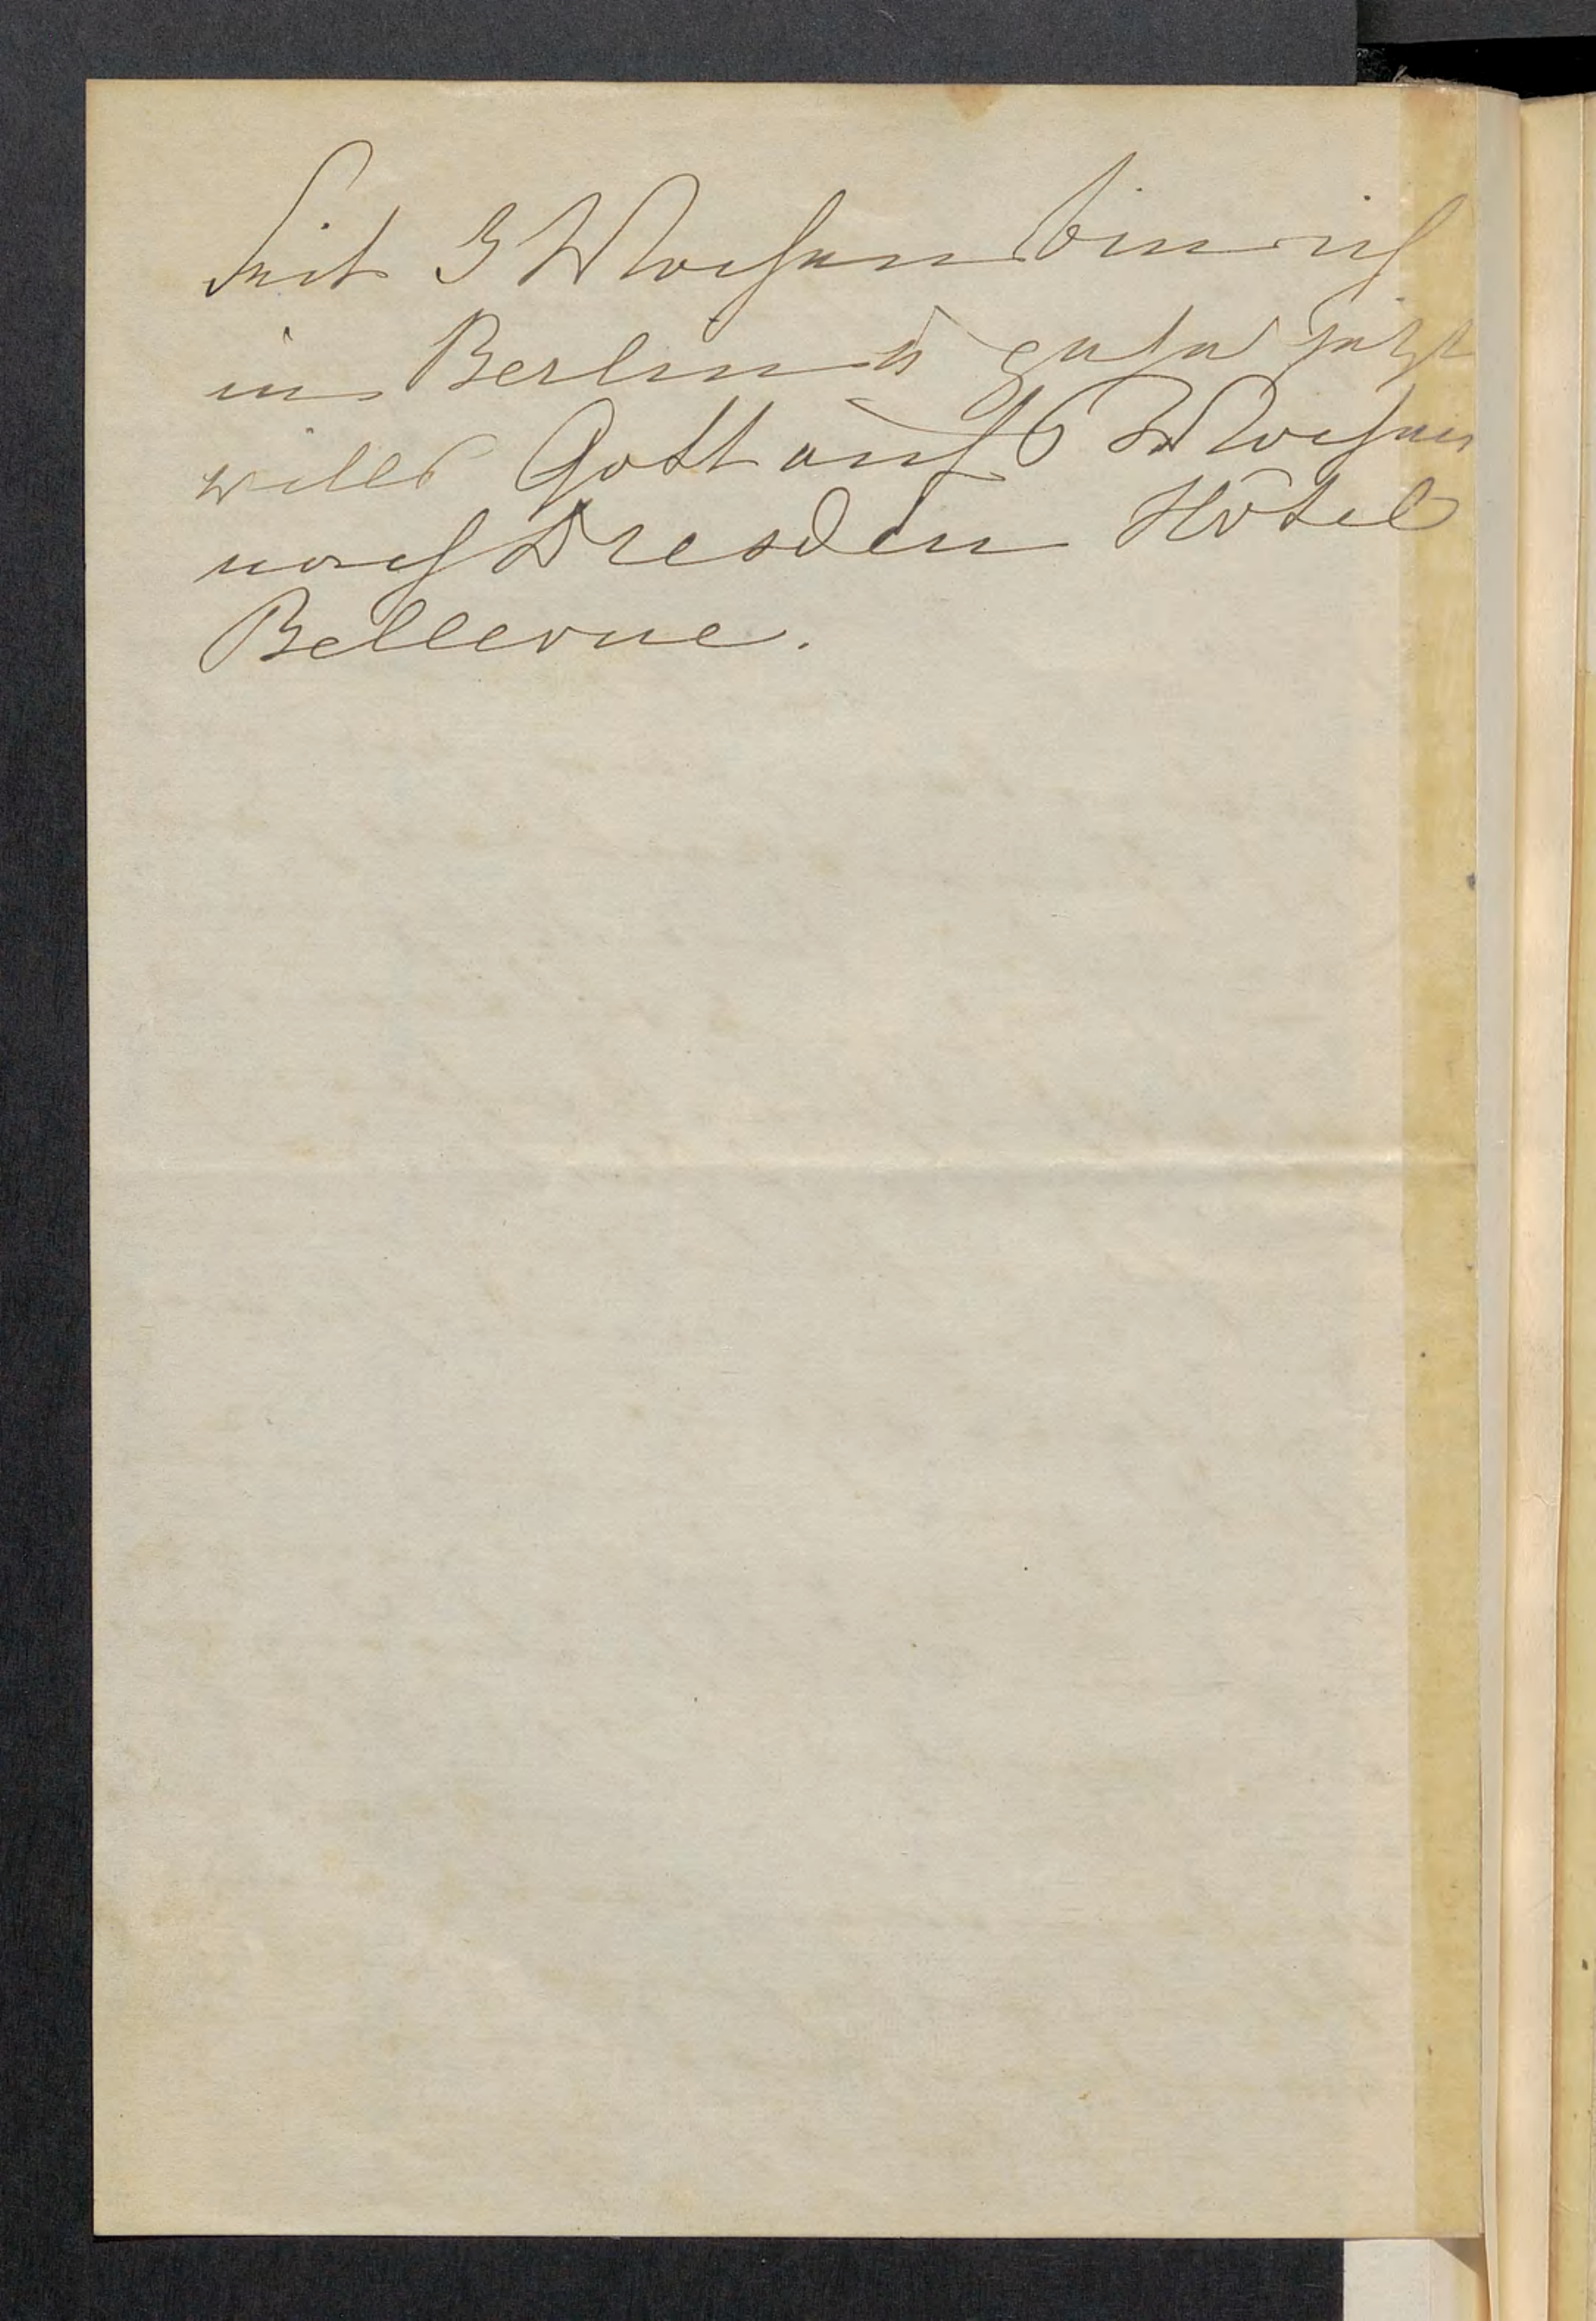 Seit 3 Wochen bin ich
in Berlin u gehe jetzt
will Gott auf 6 Wochen
nach Dresden Hôtel
Bellevue.